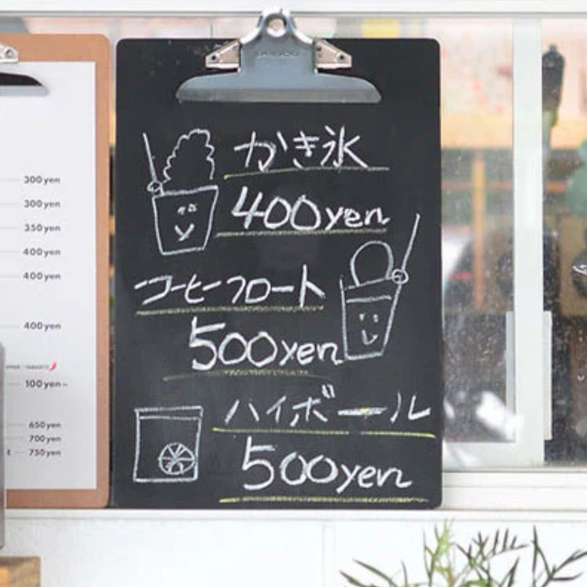 かき氷
400yen
コーヒーフロート
500yen
ハイボール
500yen
300yen
300yen
350yen
400yen
400yen
400yen
100yen~
650yen
700yen
750yen